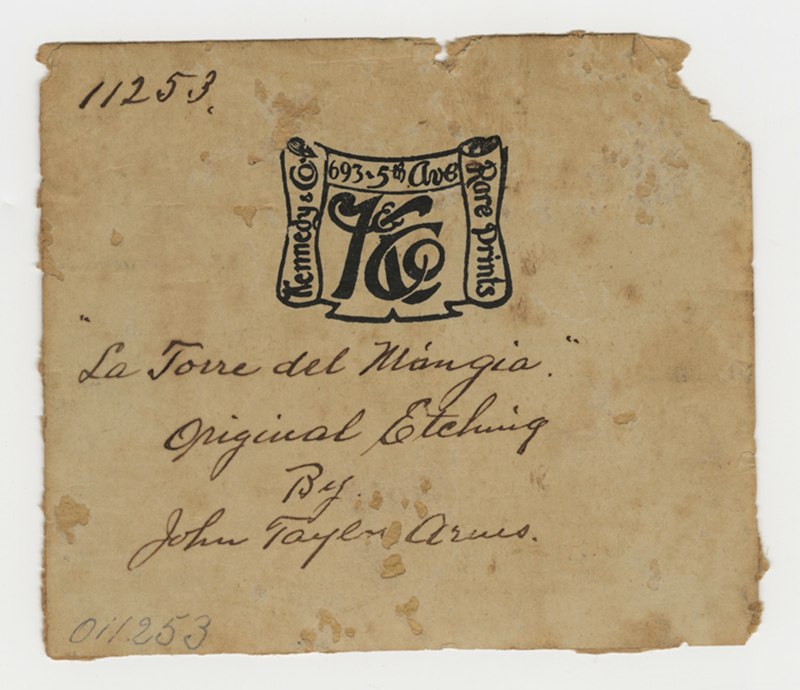 11253.
693-5th Ave
Kennedy & Co.
Rare Prints
K&Co
"La Torre del Mángia."
Original Etching
By.
John Taylor Arms.
011253